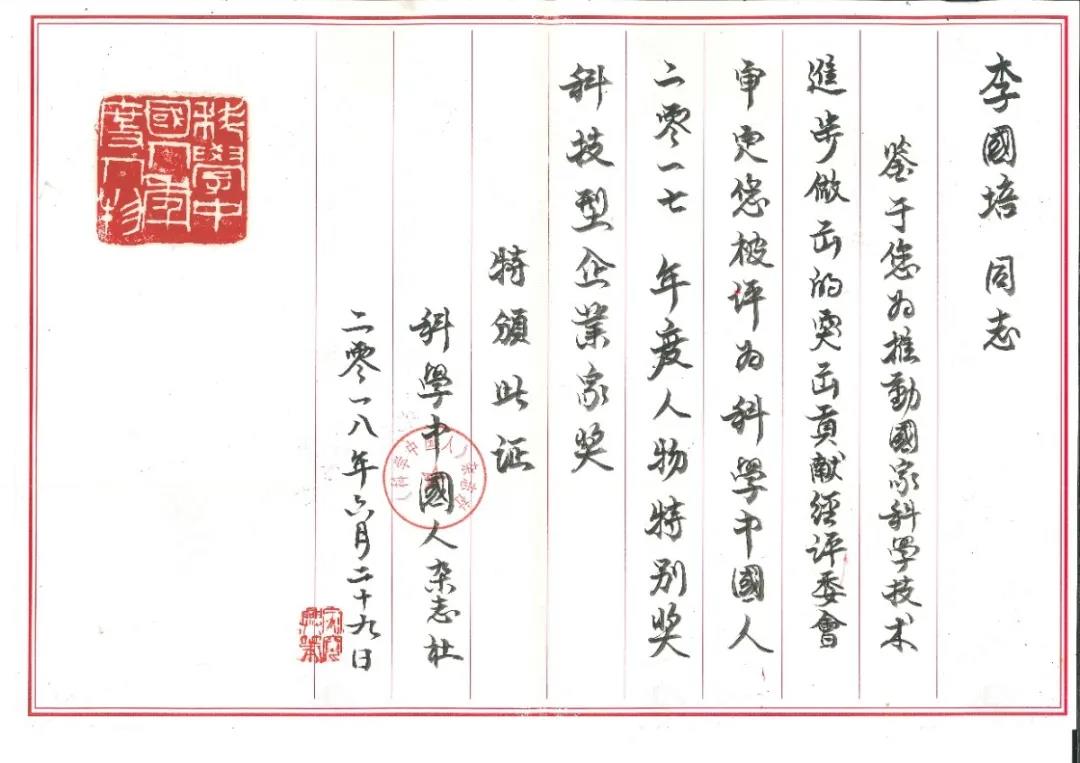 李國培 同志
鉴于您为推動國家科學技术
進步做出的突出貢献经评委會
审定您被评为科學中國人
二零一七 年度人物特别奖
科技型企業家奖
特頒此证
科學中國人杂志社
二零一八年六月二十九日
科學中國人年度人物
《科学中国人》杂志社